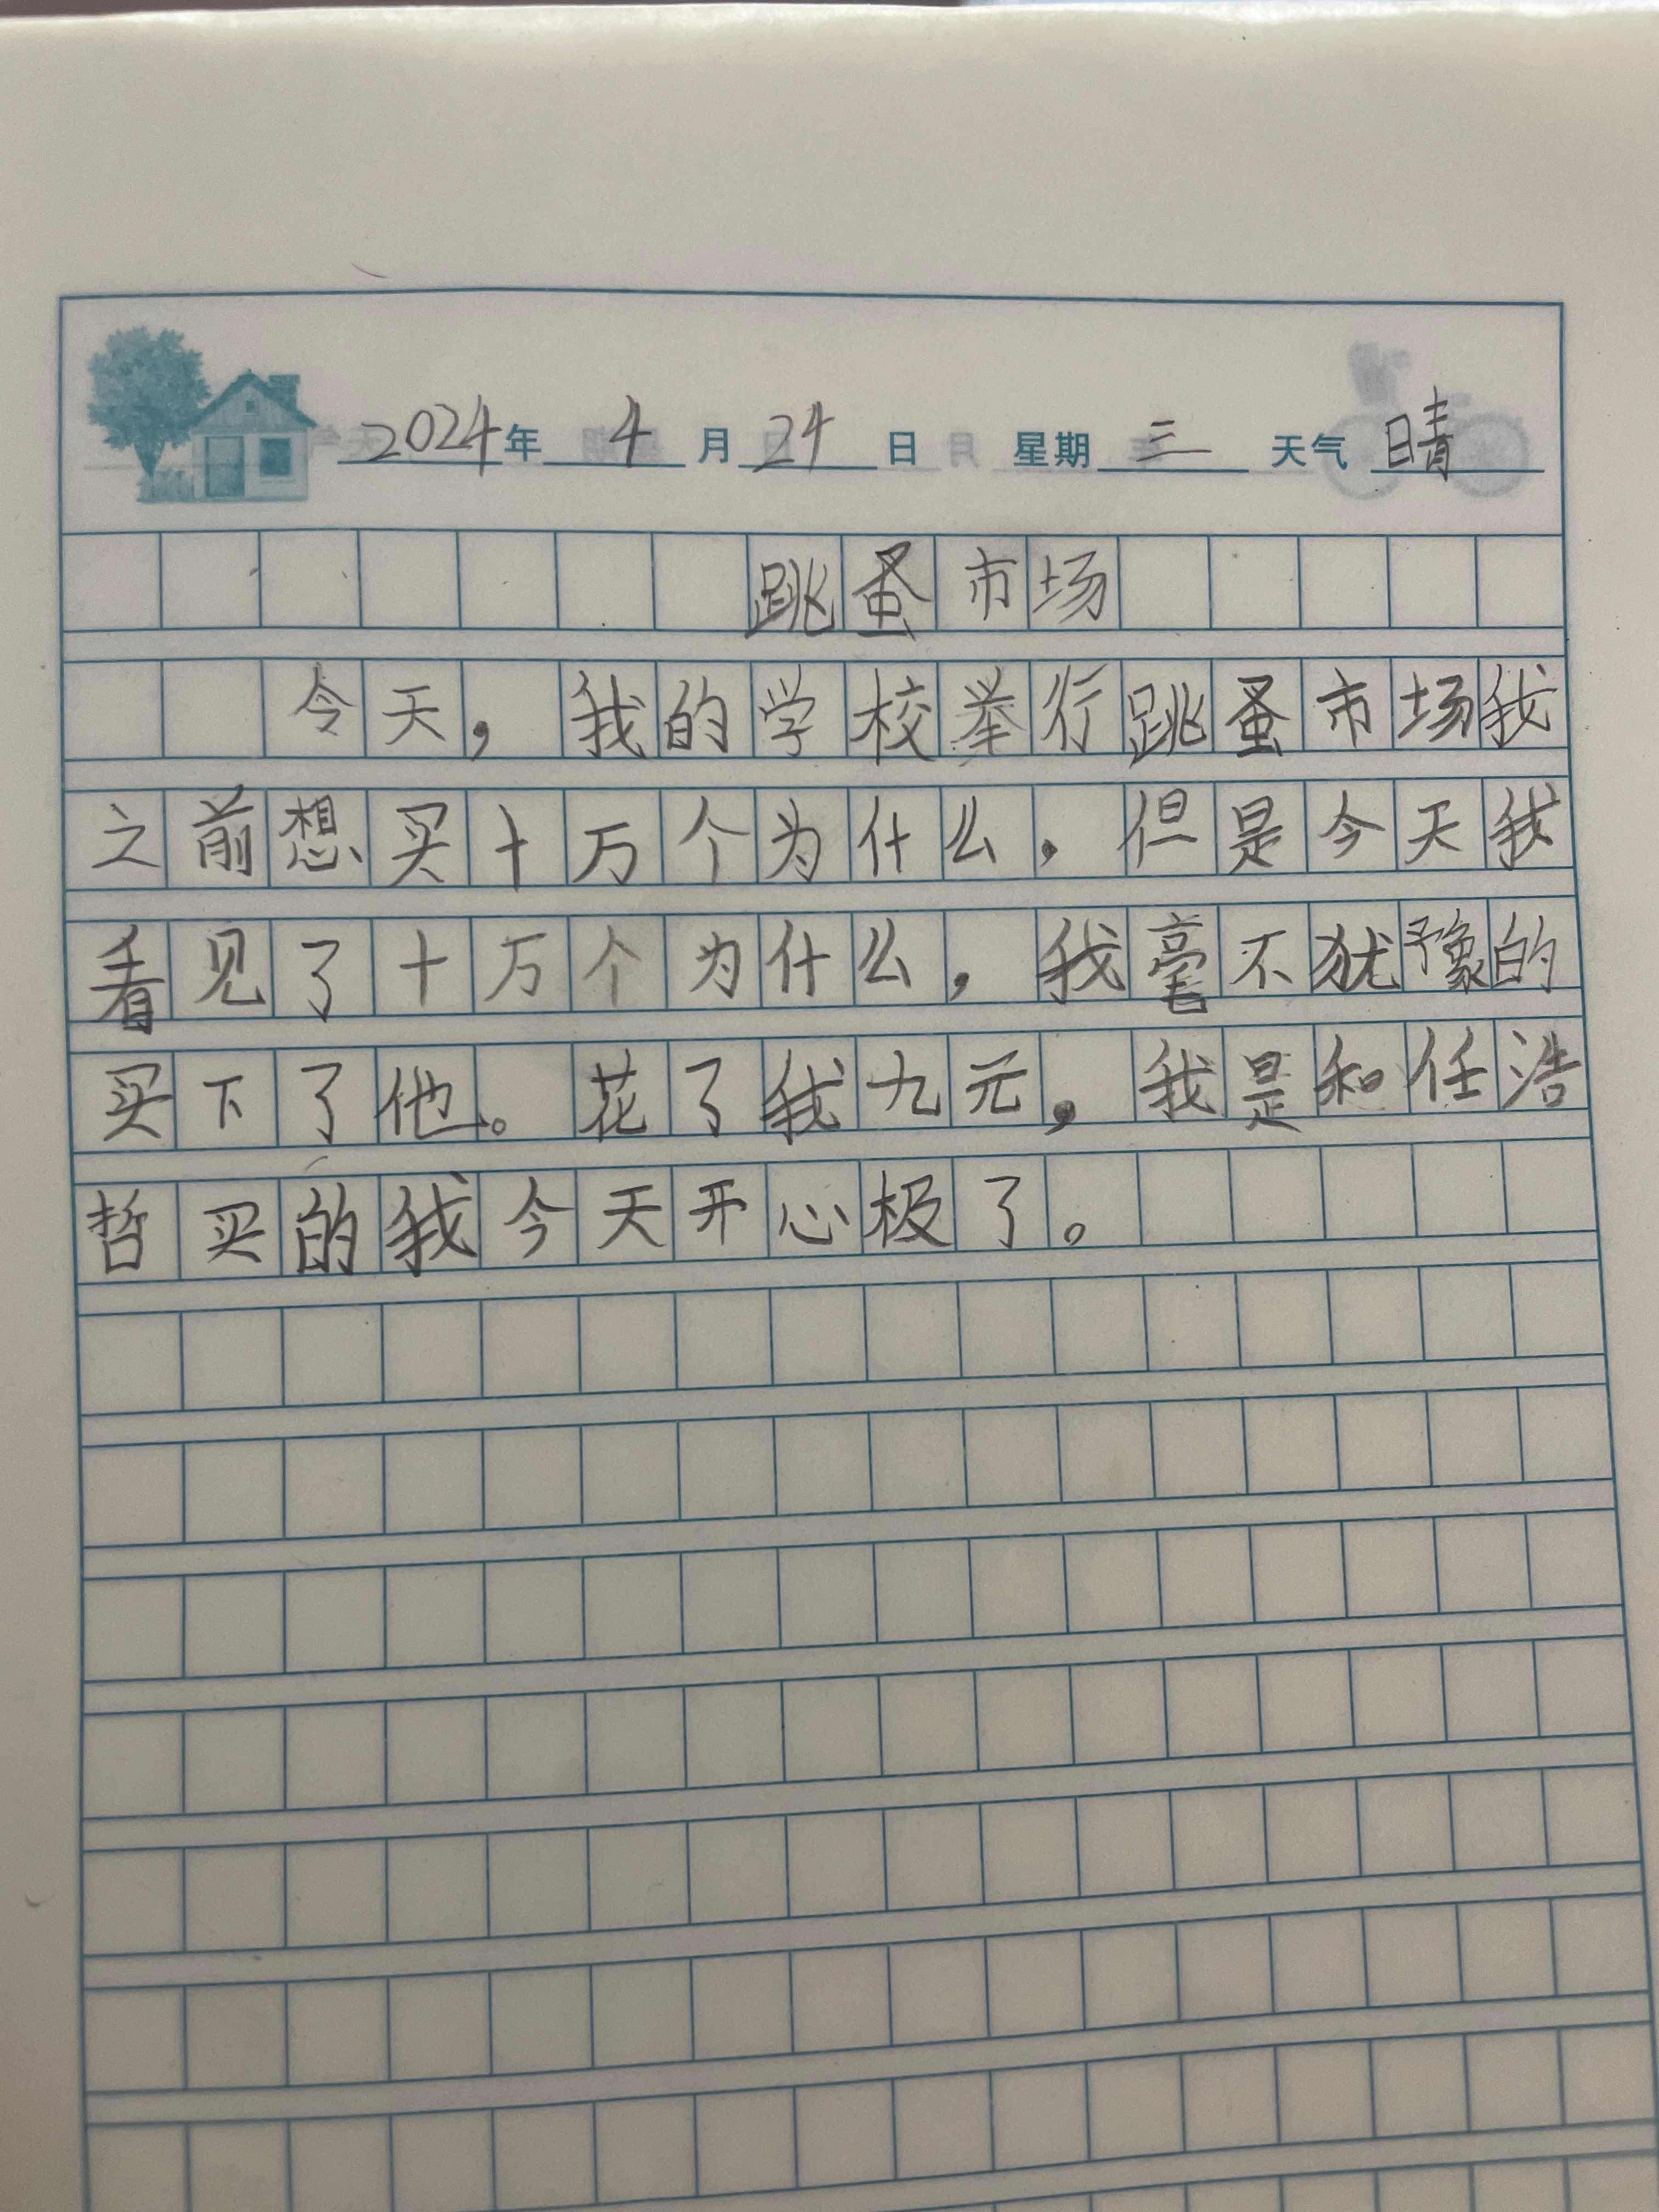 2024年 4 月 24 日 星期 三 天气 晴
跳蚤市场
今天，我的学校举行跳蚤市场我
之前想买十万个为什么，但是今天我
看见了十万个为什么，我毫不犹豫的
买下了他。花了我九元，我是和任浩
哲买的我今天开心极了。